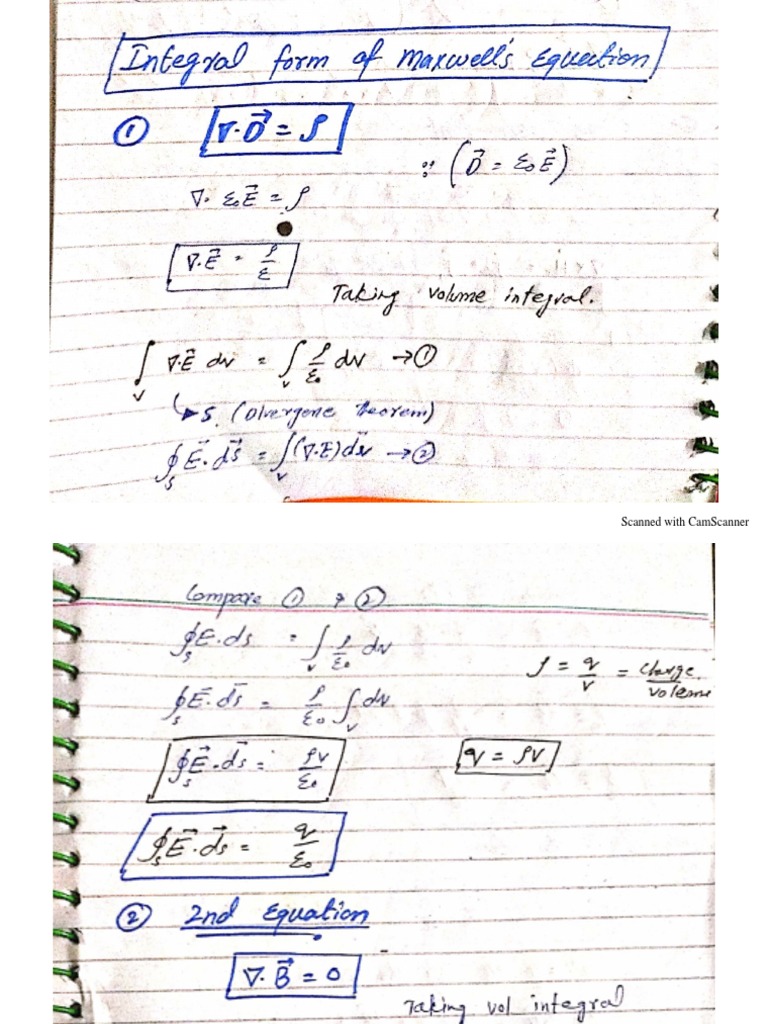 Integral form of Maxwell's Equation
① ∇·D⃗ = ρ
∵ (D⃗ = ε₀E⃗)
∇· ε₀E⃗ = ρ
∇·E⃗ = ρ/ε
Taking volume integral.
∫_v ∇·E⃗ dv = ∫_v ρ/ε₀ dv → ①
↳ S. (Divergene theorem)
∮_s E⃗·dS⃗ = ∫_v (∇·E) dv → ②
Scanned with CamScanner
Compare ① & ②
∮_s E·ds = ∫_v ρ/ε₀ dv
ρ = q/v = charge/voleme
∮_s E⃗·ds⃗ = ρ/ε₀ ∫_v dv
∮_s E⃗·ds⃗ = ρv/ε₀
q = ρv
∮_s E⃗·ds⃗ = q/ε₀
② 2nd Equation
∇·B⃗ = 0
Taking vol integral